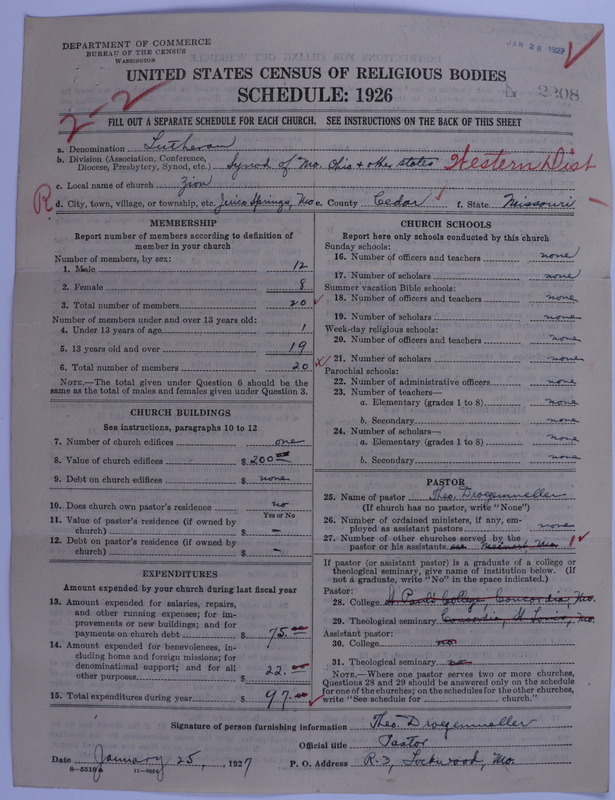 DEPARTMENT OF COMMERCE
BUREAU OF THE CENSUS
WASHINGTON
JAN 28 1927
UNITED STATES CENSUS OF RELIGIOUS BODIES
SCHEDULE: 1926
2-2
FILL OUT A SEPARATE SCHEDULE FOR EACH CHURCH. SEE INSTRUCTIONS ON THE BACK OF THIS SHEET
a. Denomination Lutheran
b. Division (Association, Conference,
Diocese, Presbytery, Synod, etc.) Synod of Mo. Ohio & other states Western Dist
c. Local name of church Zion
R d. City, town, village, or township, etc. Jerico Springs, Mo e. County Cedar f. State Missouri
MEMBERSHIP
Report number of members according to definition of
member in your church
Number of members, by sex:
1. Male 12
2. Female 8
3. Total number of members 20
Number of members under and over 13 years old:
4. Under 13 years of age 1
5. 13 years old and over 19
6. Total number of members 20
NOTE.—The total given under Question 6 should be the
same as the total of males and females given under Question 3.
CHURCH BUILDINGS
See instructions, paragraphs 10 to 12
7. Number of church edifices one
8. Value of church edifices $ 200
9. Debt on church edifices $ none
10. Does church own pastor's residence no
Yes or No
11. Value of pastor's residence (if owned by
church) $ –
12. Debt on pastor's residence (if owned by
church) $ –
EXPENDITURES
Amount expended by your church during last fiscal year
13. Amount expended for salaries, repairs,
and other running expenses; for im-
provements or new buildings; and for
payments on church debt $ 75.
14. Amount expended for benevolences, in-
cluding home and foreign missions; for
denominational support; and for all
other purposes $ 22.
15. Total expenditures during year $ 97.
CHURCH SCHOOLS
Report here only schools conducted by this church
Sunday schools:
16. Number of officers and teachers none
17. Number of scholars none
Summer vacation Bible schools:
18. Number of officers and teachers none
19. Number of scholars none
Week-day religious schools:
20. Number of officers and teachers none
21. Number of scholars none
Parochial schools:
22. Number of administrative officers none
23. Number of teachers—
a. Elementary (grades 1 to 8) none
b. Secondary none
24. Number of scholars—
a. Elementary (grades 1 to 8) none
b. Secondary none
PASTOR
25. Name of pastor Theo. Droegemueller
(If church has no pastor, write "None")
26. Number of ordained ministers, if any, em-
ployed as assistant pastors none
27. Number of other churches served by the
pastor or his assistants 1
If pastor (or assistant pastor) is a graduate of a college or
theological seminary, give name of institution below. (If
not a graduate, write "No" in the space indicated.)
Pastor:
28. College St Paul's College, Concordia, Mo.
29. Theological seminary Concordia, St Louis, Mo.
Assistant pastor:
30. College no
31. Theological seminary no
NOTE.—Where one pastor serves two or more churches,
Questions 28 and 29 should be answered only on the schedule
for one of the churches; on the schedules for the other churches,
write "See schedule for church."
Signature of person furnishing information Theo. Droegemueller
Official title Pastor
Date January 25, 1927 P. O. Address R-2, Lockwood, Mo.